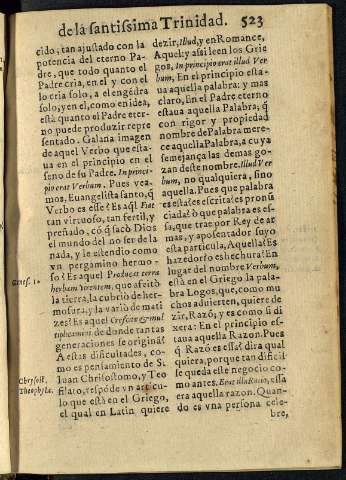 de la santissima Trinidad. 523
cido, tan ajustado con la
potencia del eterno Pa-
dre, que todo quanto el
Padre cria, en el y con el
lo cria solo, a el engédra
solo, y en el, como en idea,
está quanto el Padre eter-
no puede produzir repre
sentado. Galana imagen
de aquel Verbo que esta-
ua en el principio en el
seno de su Padre. In princi-
pio erat Verbum. Pues vea-
mos, Euangelista santo, q̃
Verbo es esse? Es aq̃l Fiat
tan virtuoso, tan fertil, y
preñado, có q̃ sacò Dios
el mundo del no ser de la
nada, y le estendio como
vn pergamino hermo-
so? Es aquel Producat terra
herbam virentem, que afeitò
la tierra, la cubrio de her-
mosura, y la vario de mati
zes? Es aquel Crescite & mul
tiplicamini de donde tantas
generaciones se originã?
A estas dificultades, co-
mo es pensamiento de S.
Iuan Chrisostomo, y Teo
filato, respóde vn articu-
lo que està en el Griego,
el qual en Latin quiere
Genes. 1.
Chrysost.
Theophyla.
dezir, Illud, y en Romance,
Aquel: y assi leen los Grie
gos, In principio erat illud Ver
bum, En el principio esta-
ua aquella palabra: y mas
claro, En el Padre eterno
estaua aquella Palabra; q̃
con rigor y propiedad
nombre de Palabra mere-
ce aquella Palabra, a cuya
semejança las demas go-
zan deste nombre. Illud Ver
bum, no qualquiera, sino
aquella. Pues que palabra
es esta? es escrita? es pronũ
ciada? ò que palabra es es-
sa, que trae por Rey de ar
mas, y aposentador suyo
esta particula, Aquella? Es
hazedor? o es hechura? En
lugar del nombre Verbum,
està en el Griego la pala-
bra Logos, que, como mu
chos aduierten, quiere de
zir, Razó; y es como si di
xera: En el principio es-
taua aquella Razon. Pues
q̃ Razó es essa? dira qual
quiera, porque tan dificil
se queda este negocio co-
mo antes. Erat illa Ratio, essa
era aquella razon. Quan-
do es vna persona cele-
bre,